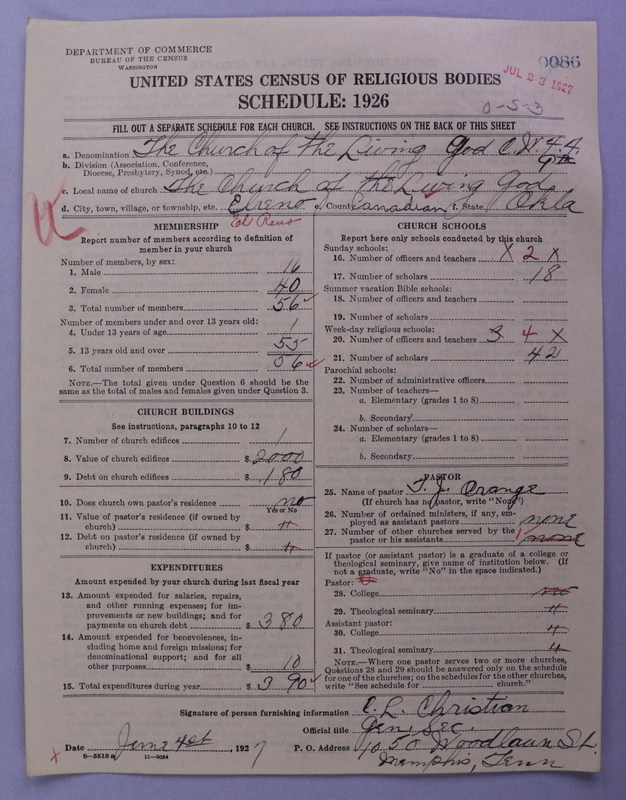 DEPARTMENT OF COMMERCE
BUREAU OF THE CENSUS
WASHINGTON
0086
JUL 23 1927
0-5-3
UNITED STATES CENSUS OF RELIGIOUS BODIES
SCHEDULE: 1926
FILL OUT A SEPARATE SCHEDULE FOR EACH CHURCH. SEE INSTRUCTIONS ON THE BACK OF THIS SHEET
a. Denomination The Church of the Living God C.W.F.F.
b. Division (Association, Conference,
Diocese, Presbytery, Synod, etc.)
c. Local name of church The Church of the Living God
d. City, town, village, or township, etc. Elreno e. County Canadian f. State Okla
El Reno
MEMBERSHIP
Report number of members according to definition of
member in your church
Number of members, by sex:
1. Male 16
2. Female 40
3. Total number of members 56
Number of members under and over 13 years old:
4. Under 13 years of age 1
5. 13 years old and over 55
6. Total number of members 56
NOTE.—The total given under Question 6 should be
same as the total of males and females given under Question 3.
CHURCH BUILDINGS
See instructions, paragraphs 10 to 12
7. Number of church edifices 1
8. Value of church edifices $ 2000
9. Debt on church edifices $ 180
10. Does church own pastor's residence no
Yes or No
11. Value of pastor's residence (if owned by
church) $ "
12. Debt on pastor's residence (if owned by
church) $ "
EXPENDITURES
Amount expended by your church during last fiscal year
13. Amount expended for salaries, repairs,
and other running expenses; for im-
provements or new buildings; and for
payments on church debt $ 380
14. Amount expended for benevolences, in-
cluding home and foreign missions; for
denominational support; and for all
other purposes $ 10
15. Total expenditures during year $ 390
CHURCH SCHOOLS
Report here only schools conducted by this church
Sunday schools:
16. Number of officers and teachers X 2 X
17. Number of scholars 18
Summer vacation Bible schools:
18. Number of officers and teachers
19. Number of scholars
Week-day religious schools:
20. Number of officers and teachers 3 4 X
21. Number of scholars 42
Parochial schools:
22. Number of administrative officers
23. Number of teachers—
a. Elementary (grades 1 to 8)
b. Secondary
24. Number of scholars—
a. Elementary (grades 1 to 8)
b. Secondary
PASTOR
25. Name of pastor T. J. Orange
(If church has no pastor, write "None")
26. Number of ordained ministers, if any, em-
ployed as assistant pastors none
27. Number of other churches served by the
pastor or his assistants 1 none
If pastor (or assistant pastor) is a graduate of a college or
theological seminary, give name of institution below. (If
not a graduate, write "No" in the space indicated.)
Pastor:
28. College no
29. Theological seminary "
Assistant pastor:
30. College "
31. Theological seminary "
NOTE.—Where one pastor serves two or more churches,
Questions 28 and 29 should be answered only on the schedule
for one of the churches; on the schedules for the other churches,
write "See schedule for ........ church."
Signature of person furnishing information C. L. Christian
Official title Gen. Sec.
Date June 4st, 1927 P. O. Address 1050 Woodlawn St.
Memphis, Tenn
8-5518a 11-9054